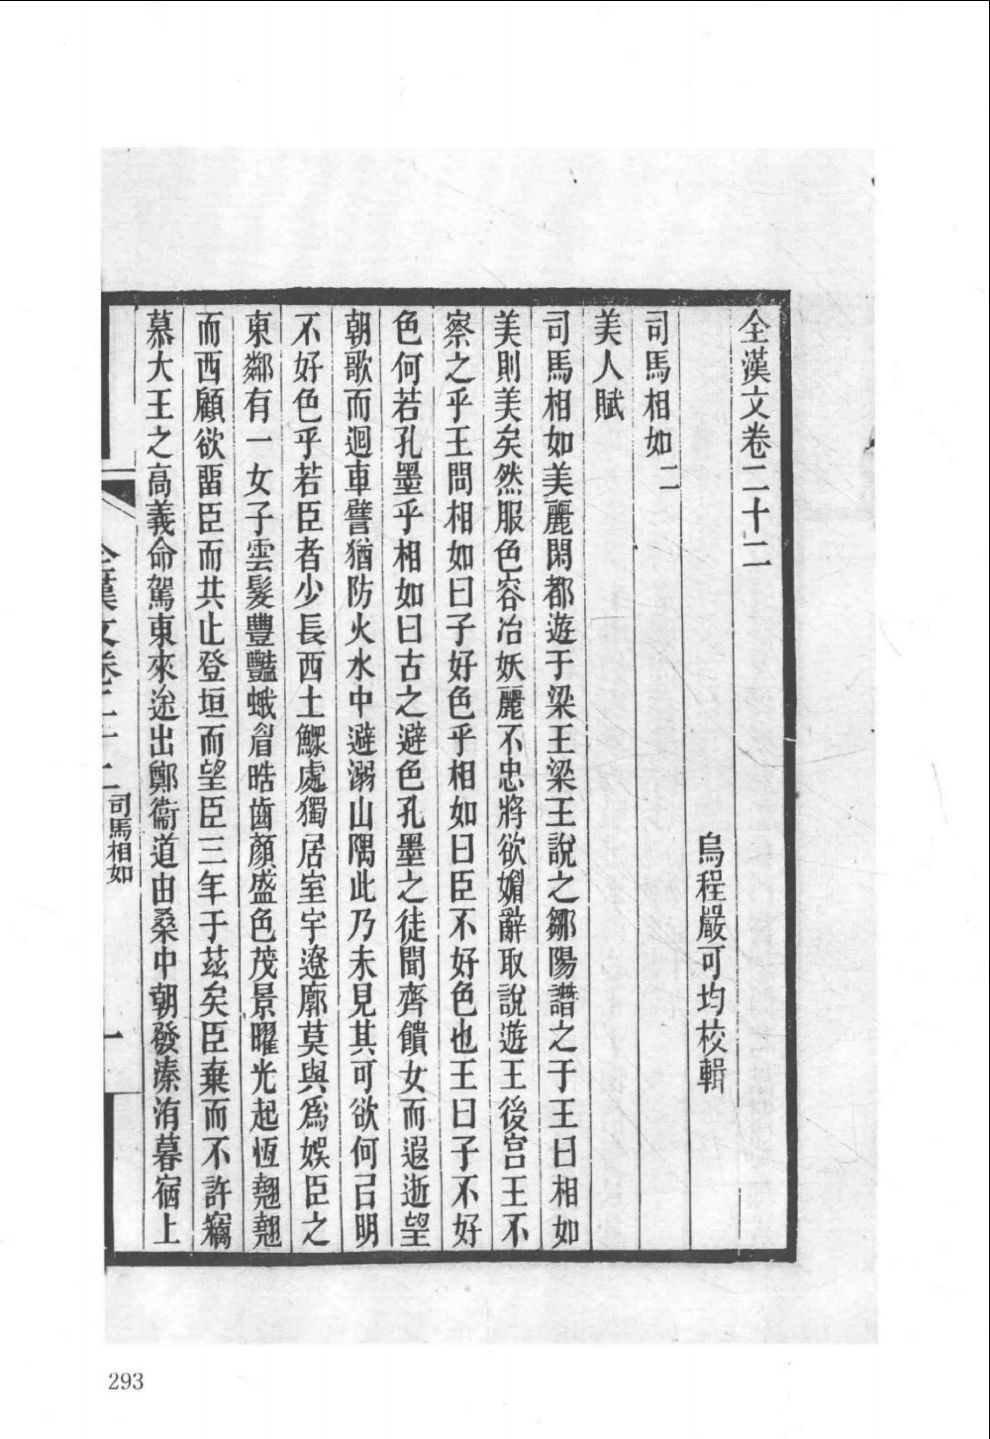 全漢文卷二十二
烏程嚴可均校輯
司馬相如二
美人賦
司馬相如美麗閑都遊于梁王梁王說之鄒陽譖之于王曰相如
美則美矣然服色容冶妖麗不忠將欲媚辭取說遊王後宮王不
察之乎王問相如曰子好色乎相如曰臣不好色也王曰子不好
色何若孔墨乎相如曰古之避色孔墨之徒聞齊饋女而遐逝望
朝歌而迴車譬猶防火水中避溺山隅此乃未見其可欲何㠯明
不好色乎若臣者少長西土鰥處獨居室宇遼廓莫與爲娛臣之
東鄰有一女子雲髮豐豔蛾眉晧齒顏盛色茂景曜光起恆翹翹
而西顧欲畱臣而共止登垣而望臣三年于茲矣臣棄而不許竊
慕大王之高義命駕東來途出鄭衞道由桑中朝發溱洧暮宿上
全漢文卷二十二 司馬相如 一
293